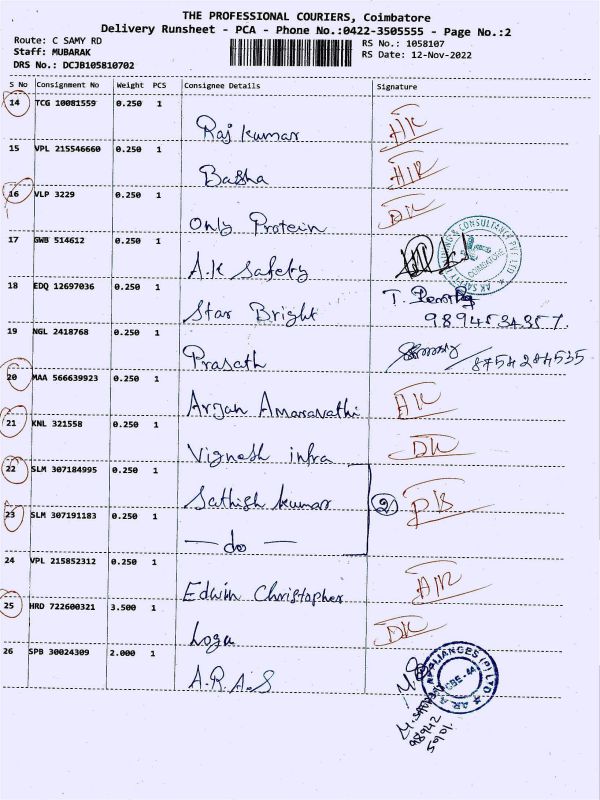 THE PROFESSIONAL COURIERS, Coimbatore
Delivery Runsheet - PCA - Phone No.:0422-3505555 - Page No.:2
Route: C SAMY RD
Staff: MUBARAK
DRS No.: DCJB105810702
RS No.: 1058107
RS Date: 12-Nov-2022
S No Consignment No Weight PCS Consignee Details Signature
14 TCG 10081559 0.250 1 Raj kumar
15 VPL 215546660 0.250 1 Basha
16 VLP 3229 0.250 1 Only Protein
17 GWB 514612 0.250 1 A.K Safety
18 EDQ 12697036 0.250 1 Star Bright
19 NGL 2418768 0.250 1 Prasath 8754284535
20 MAA 566639923 0.250 1 Arjan Amaravathi
21 KNL 321558 0.250 1 Vignesh infra
22 SLM 307184995 0.250 1 Sathish kumar 2
23 SLM 307191183 0.250 1 — do —
24 VPL 215852312 0.250 1 Edwin Christopher
25 HRD 722600321 3.500 1 Logu
26 SPB 30024309 2.000 1 A.R.A.S